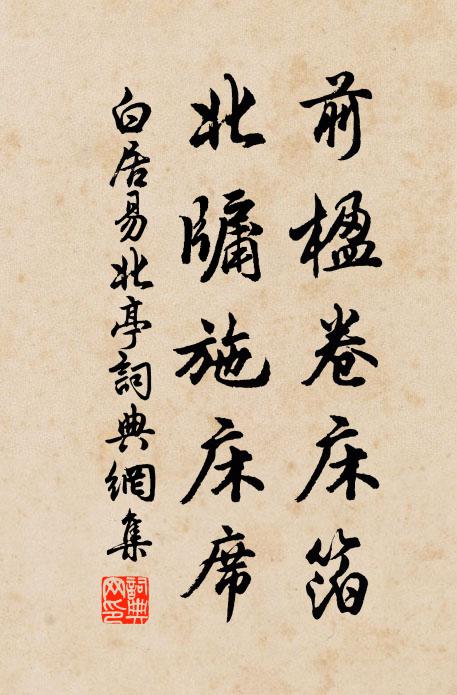 前楹卷床箔
北牖施床席
白居易北亭詞典網集
詞典網印